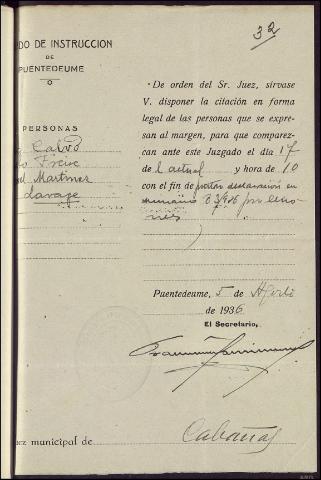 32
DO DE INSTRUCCION
DE
PUENTEDEUME
PERSONAS
Calvo
Freire
Martinez
De orden del Sr. Juez, sírvase
V. disponer la citación en forma
legal de las personas que se expre-
san al margen, para que comparez-
can ante este Juzgado el día 17
de l actual y hora de 10
con el fin de prestar declaración en
sumario por lesio-
nes
Puentedeume, 5 de Agosto
de 1936
El Secretario,
ez municipal de
Cabañas